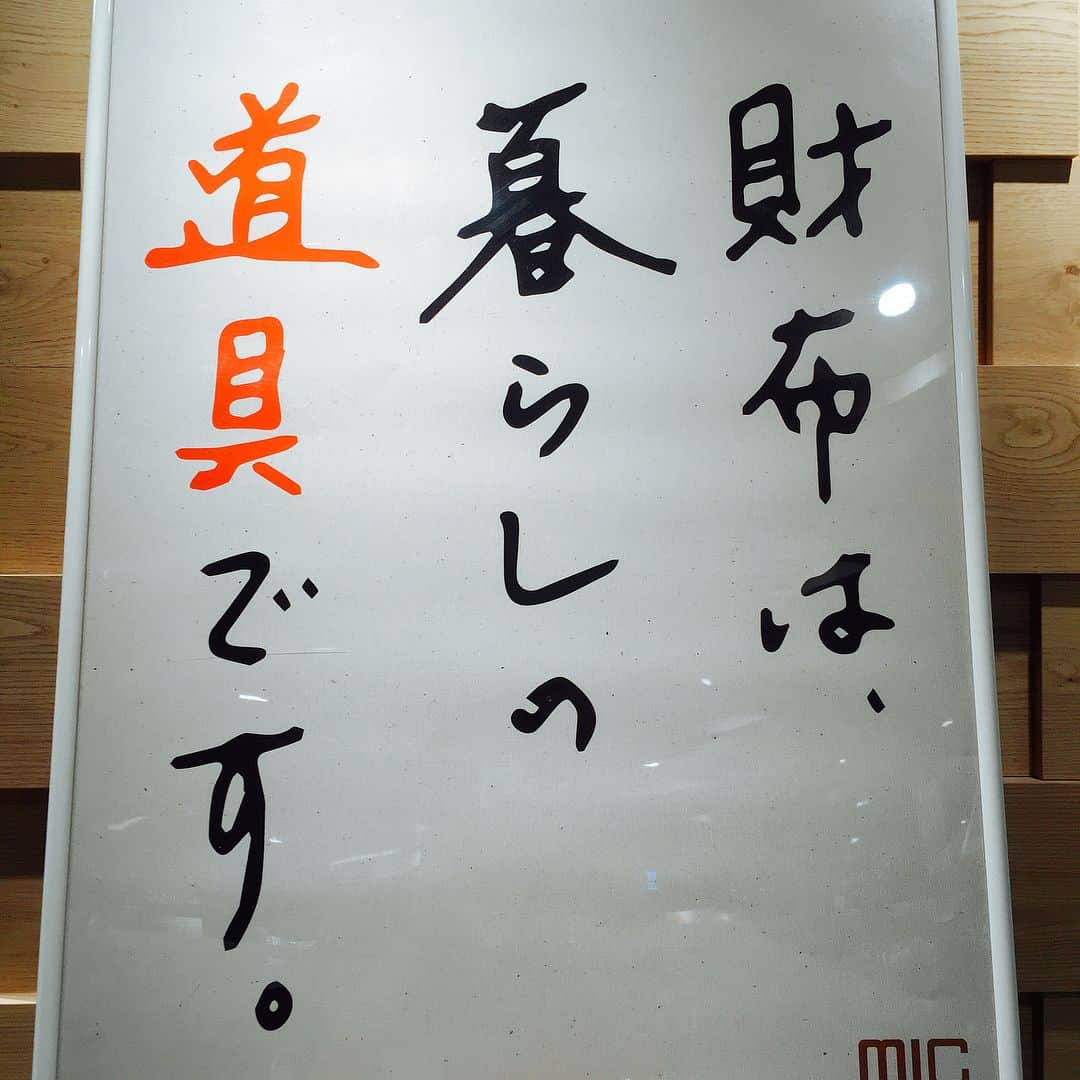 財布は、
暮らしの
道具です。
MIC